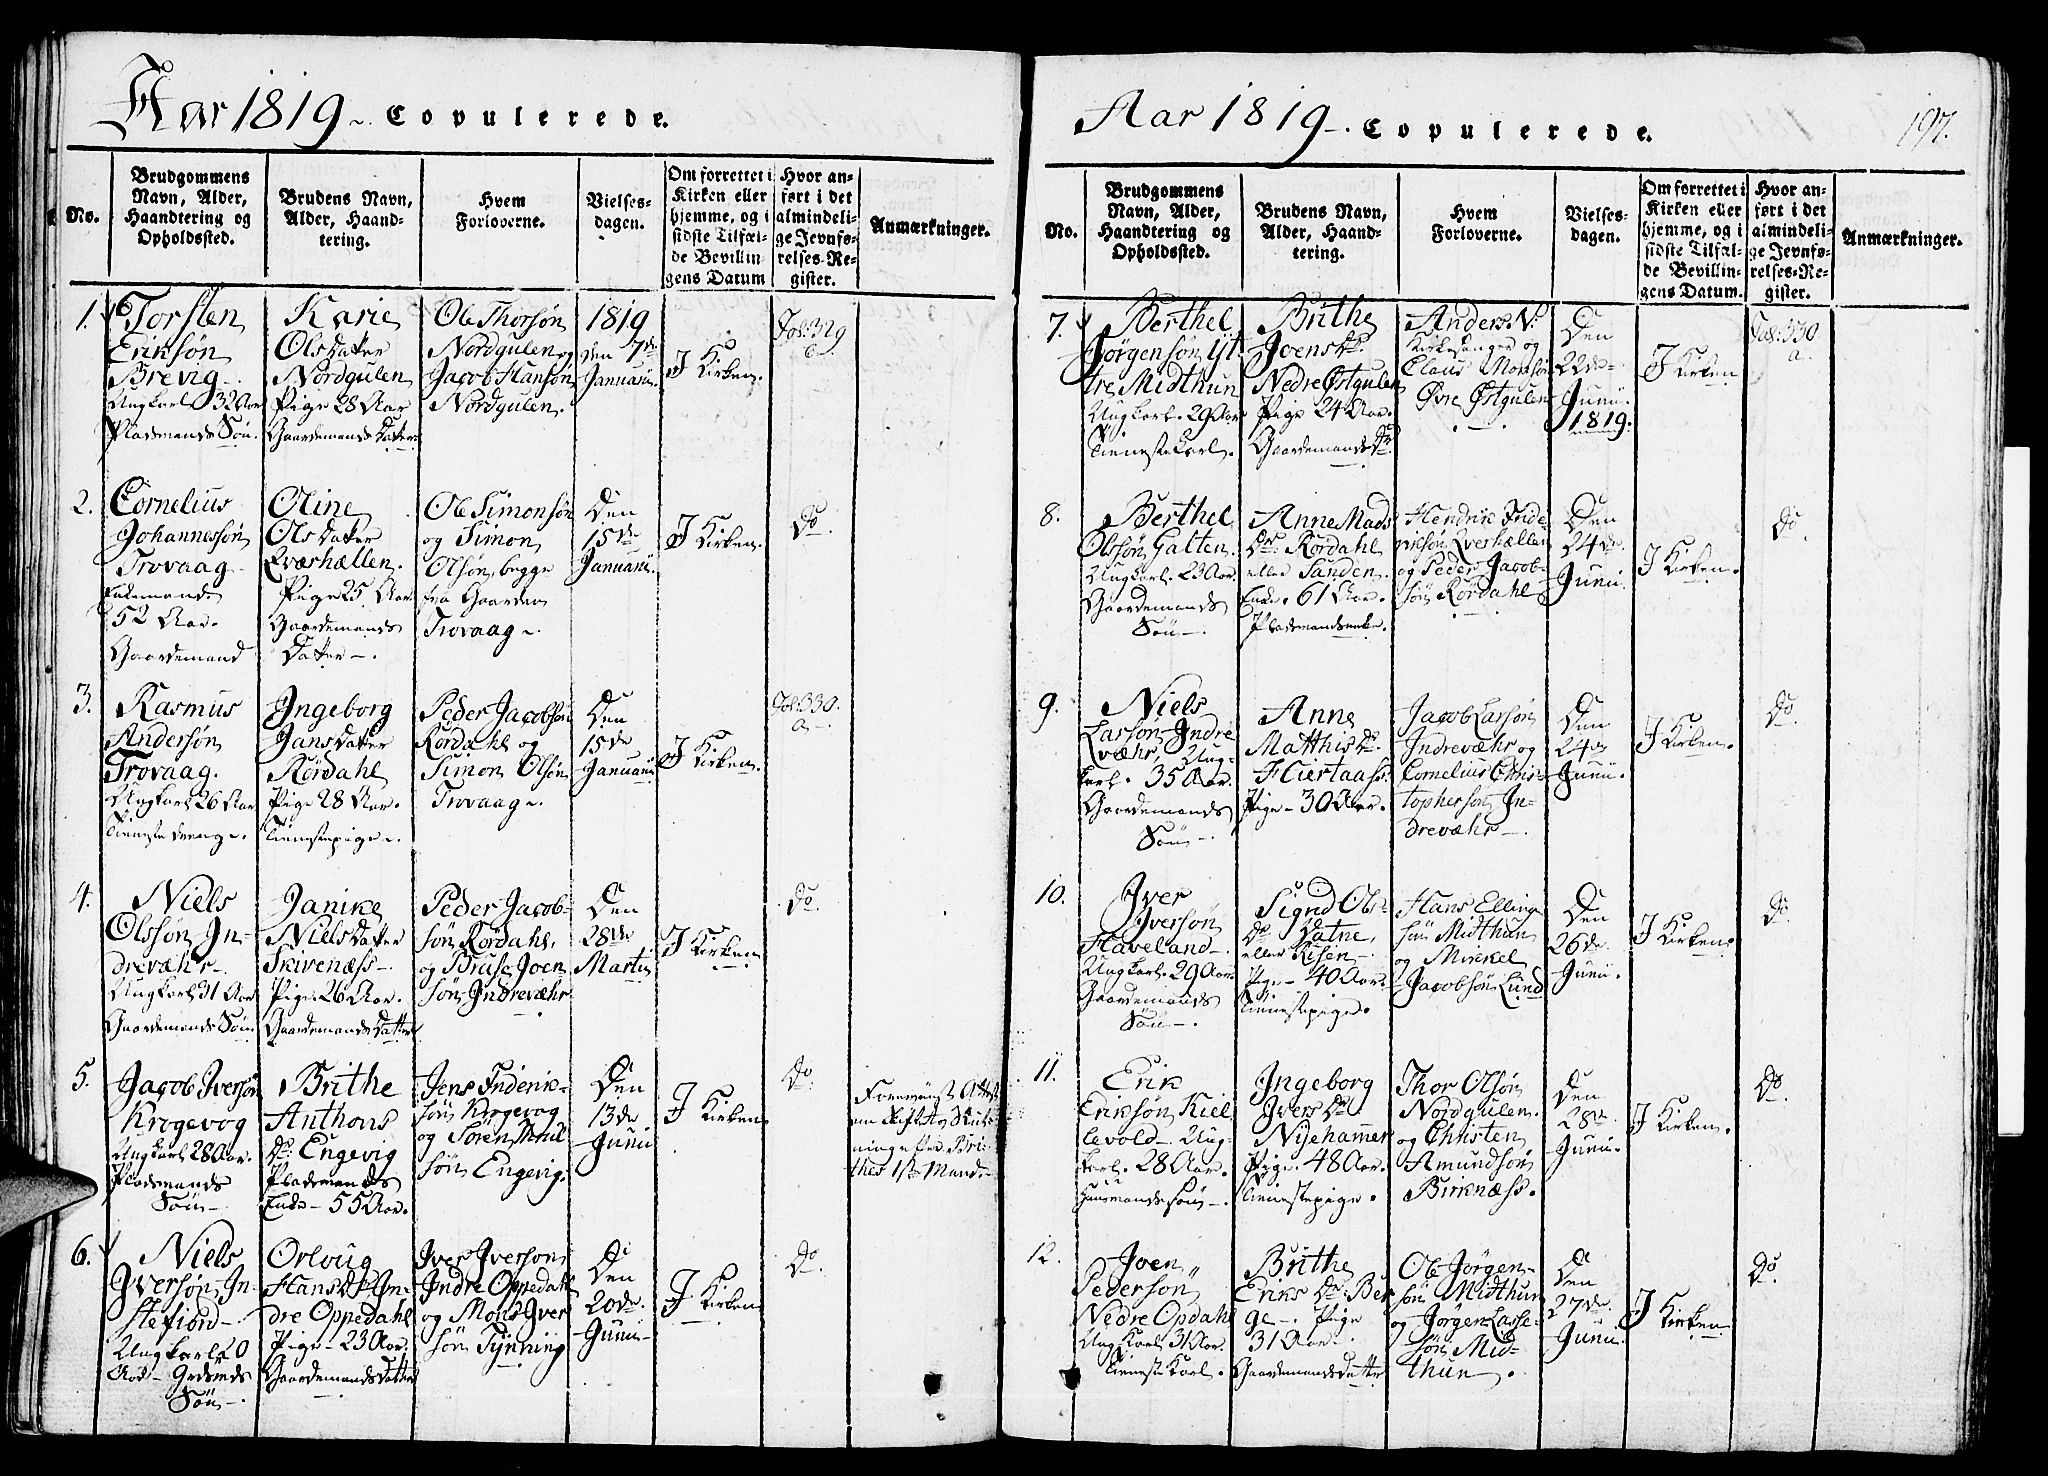 Aar 1819 Copulerede.
No.
Brudgommens
Navn, Alder,
Haandtering og
Opholdssted.
Brudens Navn,
Alder, Haand-
tering.
Hvem
Forloverne.
Vielses-
dagen.
Om forrettet i
Kirken eller
hjemme, og i
sidste Tilfæl-
de Bevillin-
gens Datum
Hvor an-
ført i det
almindeli-
ge Jevnfø-
relses-Re-
gister.
Anmærkninger.
1.
Torsten
Eriksøn
Brevig
Ungkarl 32 Aar
Pladsmands Søn.
Karie
Olsdatter
Nordgulen
Pige 28 Aar
Gaardemands Datter
Ole Thorsøn
Nordgulen og
Jacob Hansøn
Nordgulen.
1819
den 7de
Januarii
I Kirken.
Fol: 329
2.
Cornelius
Johannessøn
Trovaag
Enkemand
52 Aar.
Gaardemand
Oline
Olsdatter
Qværhællen.
Pige 25 Aar
Gaardemands
Datter
Ole Simonsøn
og Simon
Olsøn, begge
fra Gaarden
Trovaag
Den
15de
Januarii.
I Kirken.
Do.
3.
Rasmus
Andersøn
Trovaag.
Ungkarl 26 Aar
Tieneste dreng
Ingeborg
Jansdatter
Rørdahl
Pige 28 Aar.
Tienestepige
Peder Jacobsøn
Rørdahl og
Simon Olsøn
Trovaag
Den
15de
Januarii
I Kirken.
Fol: 330.
a
4.
Niels
Olssøn In-
drevæhr
Ungkarl 31 Aar
Gaardemands Søn
Janike
Nielsdatter
Skivenæss
Pige 26 Aar.
Gaardemands Datter
Peder Jacob-
søn Rørdahl,
og Bruse Joen
søn Indrevæhr
Den
28de
Martii
I Kirken
Do.
5.
Jacob Iversøn
Krogevog
Ungkarl 28 Aar.
Pladsmands
Søn
Brithe
Anthons
Dr. Engevig
Pladsmands
Enke 55 Aar.
Jens Friderik-
søn Krogevog
og Søren
søn Engevig.
Den
13de
Junii
I Kirken
Do.
om Skifte og
ning efter Bri-
thes 1ste Mand.
6.
Niels
Iversøn In-
stefiord
Ungkarl 20
Aar
Søn
Orloug
Hans Dr. In-
dre Oppedahl
Pige 23 Aar.
Gaardemands Datter
Iver Iversøn
Indre Oppedahl
og Mons Iver
søn Tynning
Den
20de.
Junii
I Kirken
Do.
Aar 1819. Copulerede. 197.
No.
Brudgommens
Navn, Alder,
Haandtering og
Opholdssted.
Brudens Navn,
Alder, Haand-
tering.
Hvem
Forloverne.
Vielses-
dagen.
Om forrettet i
Kirken eller
hjemme, og i
sidste Tilfæl-
de Bevillin-
gens Datum.
Hvor an-
ført i det
almindeli-
ge Jevnfø-
relses-Re-
gister.
Anmærkninger.
7.
Berthel
Jørgensøn Yt
tre Midthun
Ungkarl. 29 Aar
Tienestekarl.
Brithe
Joens Dr.
Nedre Østgulen
Pige 24 Aar.
Gaardemands Dr.
Anders N.
Kirkesanger og
Claus Monsøn
Øvre Østgulen
Den
22de
Junii.
1819.
I Kirken
Fol: 330
a.
8.
Berthel
Olssøn Galten.
Ungkarl. 23 Aar.
Gaardemands
Søn
Anne Mads
Dr. Rørdahl
eller Sanden.
Enke. 61 Aar.
Pladsmandsenke.
Hendrik Fride
riksøn Qverhællen
og Peder Jacob-
søn Rørdahl
Den
24de.
Junii
I Kirken.
Do.
9.
Niels
Larsøn Indre
væhr, Ung-
karl. 35 Aar.
Gaardemands
Søn
Anne
Matthis Dr.
Hiertaass
Pige 30 Aar.
Jacob Larsøn
Indrevæhr og
Cornelius Chris-
tophersøn In-
drevæhr
Den
24de
Junii.
I Kirken.
Do.
10.
Iver
Iversøn
Haveland
Ungkarl. 29 Aar
Gaardemands
Søn
Sigrid Ols
Dr. Datne,
eller Risen
Pige 40 Aar.
Tienestepige.
Hans Elling
søn Midthun
og Mickel
Jacobsøn Lund
Den
26de.
Junii.
I Kirken.
Do.
11.
Erik
Eriksøn Kiel
levold Ung-
karl. 28 Aar.
Huusmands søn
Ingeborg
Ivers Dr.
Nyehammer
Pige. 48 Aar.
Tienestepige.
Thor Olsøn
Nordgulen.
og Christen
Amundsøn
Birknæss.
Den
28de
Junii.
I Kirken.
Do.
12.
Joen
Pedersøn
Nedre Opdahl
Ungkarl 31 Aar.
Tienestekarl.
Brithe
Eriks Dr. Ber
ge. Pige
31 Aar.
Gaardemandsdatter
Ole Jørgen-
søn Midthun
og Jørgen Lasse-
søn Mid-
thun.
Den
27de.
Junii
I Kirken
Do.